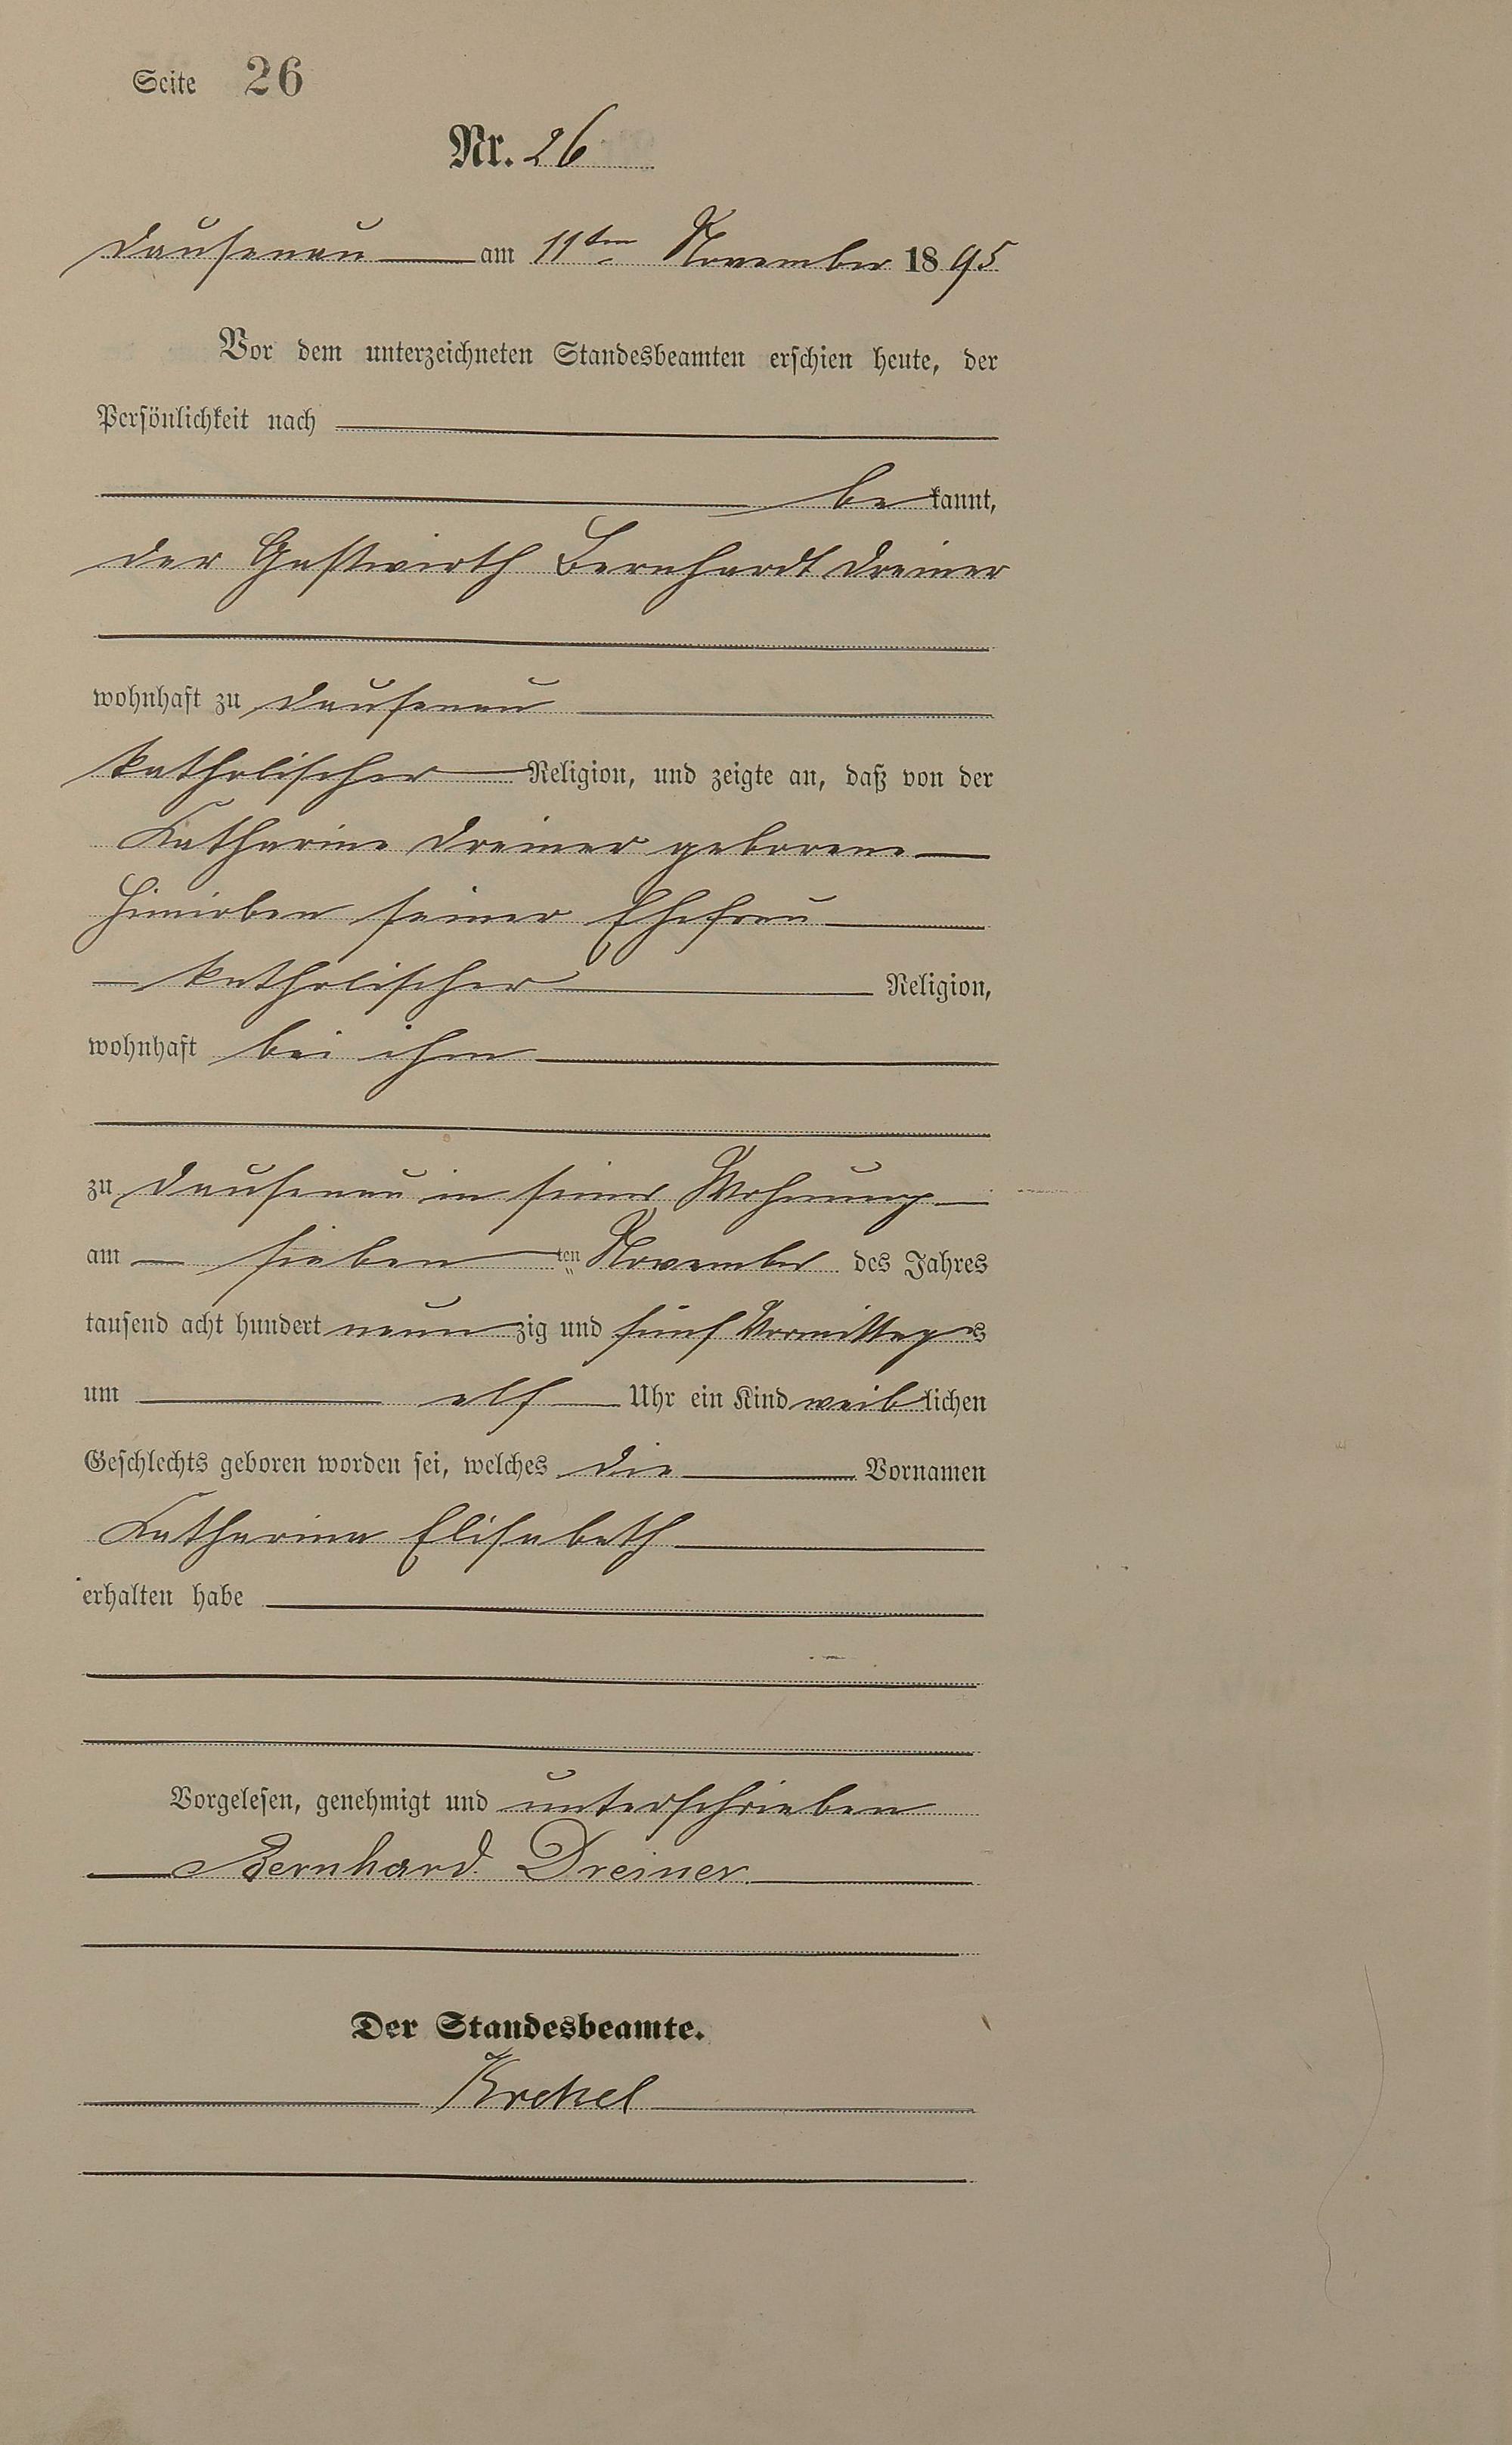 Seite 26
Nr. 26
Dausenau am 11ten November 1895
Vor dem unterzeichneten Standesbeamten erschien heute, der
Persönlichkeit nach
bekannt,
der Gastwirth Bernhardt Dreiner
wohnhaft zu Dausenau
katholischer Religion, und zeigte an, daß von der
Katharina Dreiner geborene
seiner Ehefrau
katholischer Religion,
wohnhaft bei ihm
zu Dausenau in seiner Wohnung
am sieben ten November des Jahres
tausend acht hundert neunzig und fünf Vormittags
um elf Uhr ein Kind weiblichen
Geschlechts geboren worden sei, welches die Vornamen
Katharina Elisabeth
erhalten habe
Vorgelesen, genehmigt und unterschrieben
Bernhard Dreiner
Der Standesbeamte.
Krekel